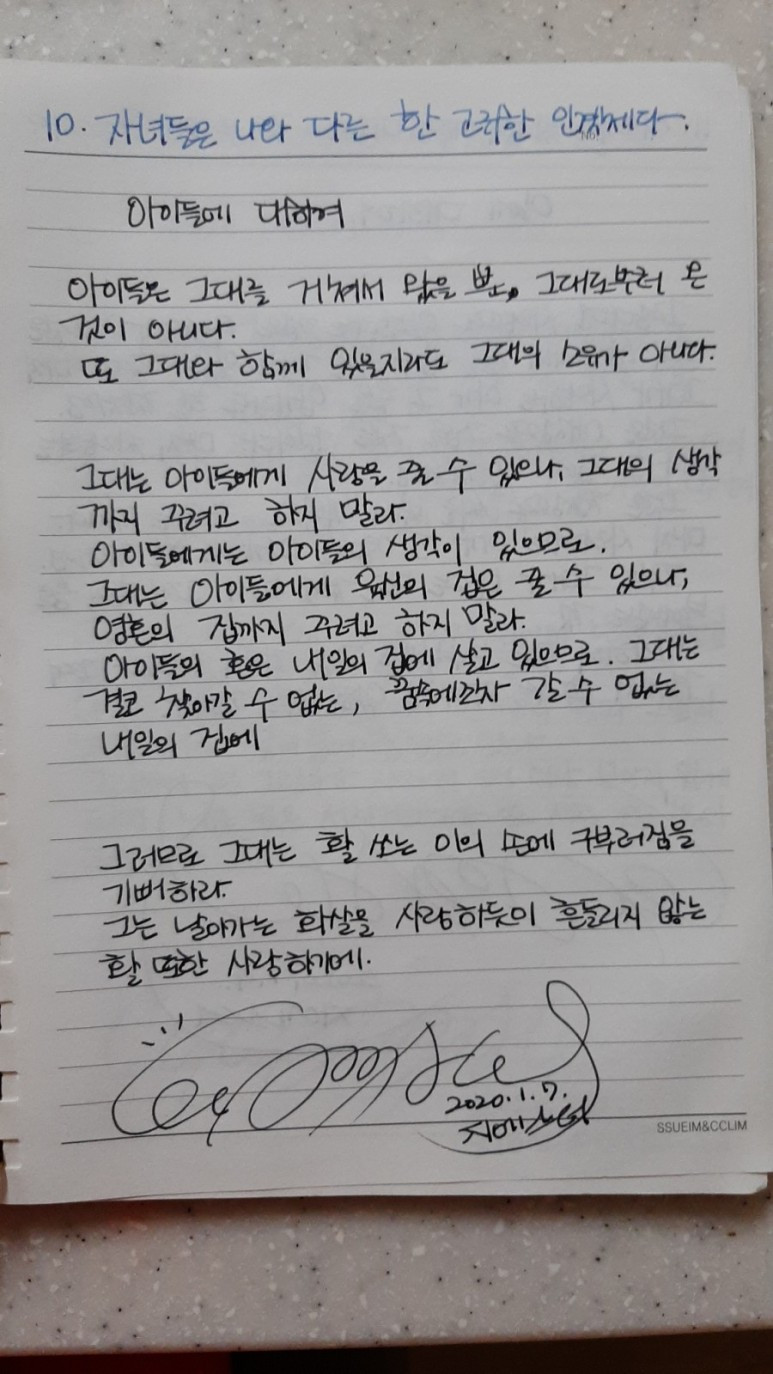 10. 자녀들은 나와 다른 한 고귀한 인격체다.
아이들에 대하여
아이들은 그대를 거쳐서 왔을 뿐, 그대로부터 온
것이 아니다.
또 그대와 함께 있을지라도 그대의 소유가 아니다.
그대는 아이들에게 사랑을 줄 수 있으나, 그대의 생각
까지 주려고 하지 말라.
아이들에게는 아이들의 생각이 있으므로.
그대는 아이들에게 육신의 집은 줄 수 있으나,
영혼의 집까지 주려고 하지 말라.
아이들의 혼은 내일의 집에 살고 있으므로. 그대는
결코 찾아갈 수 없는, 꿈속에조차 갈 수 없는
내일의 집에
그러므로 그대는 활 쏘는 이의 손에 구부러짐을
기뻐하라.
그는 날아가는 화살을 사랑하듯이 흔들리지 않는
활 또한 사랑하기에.
2020.1.7.
SSUEIM&CCLIM